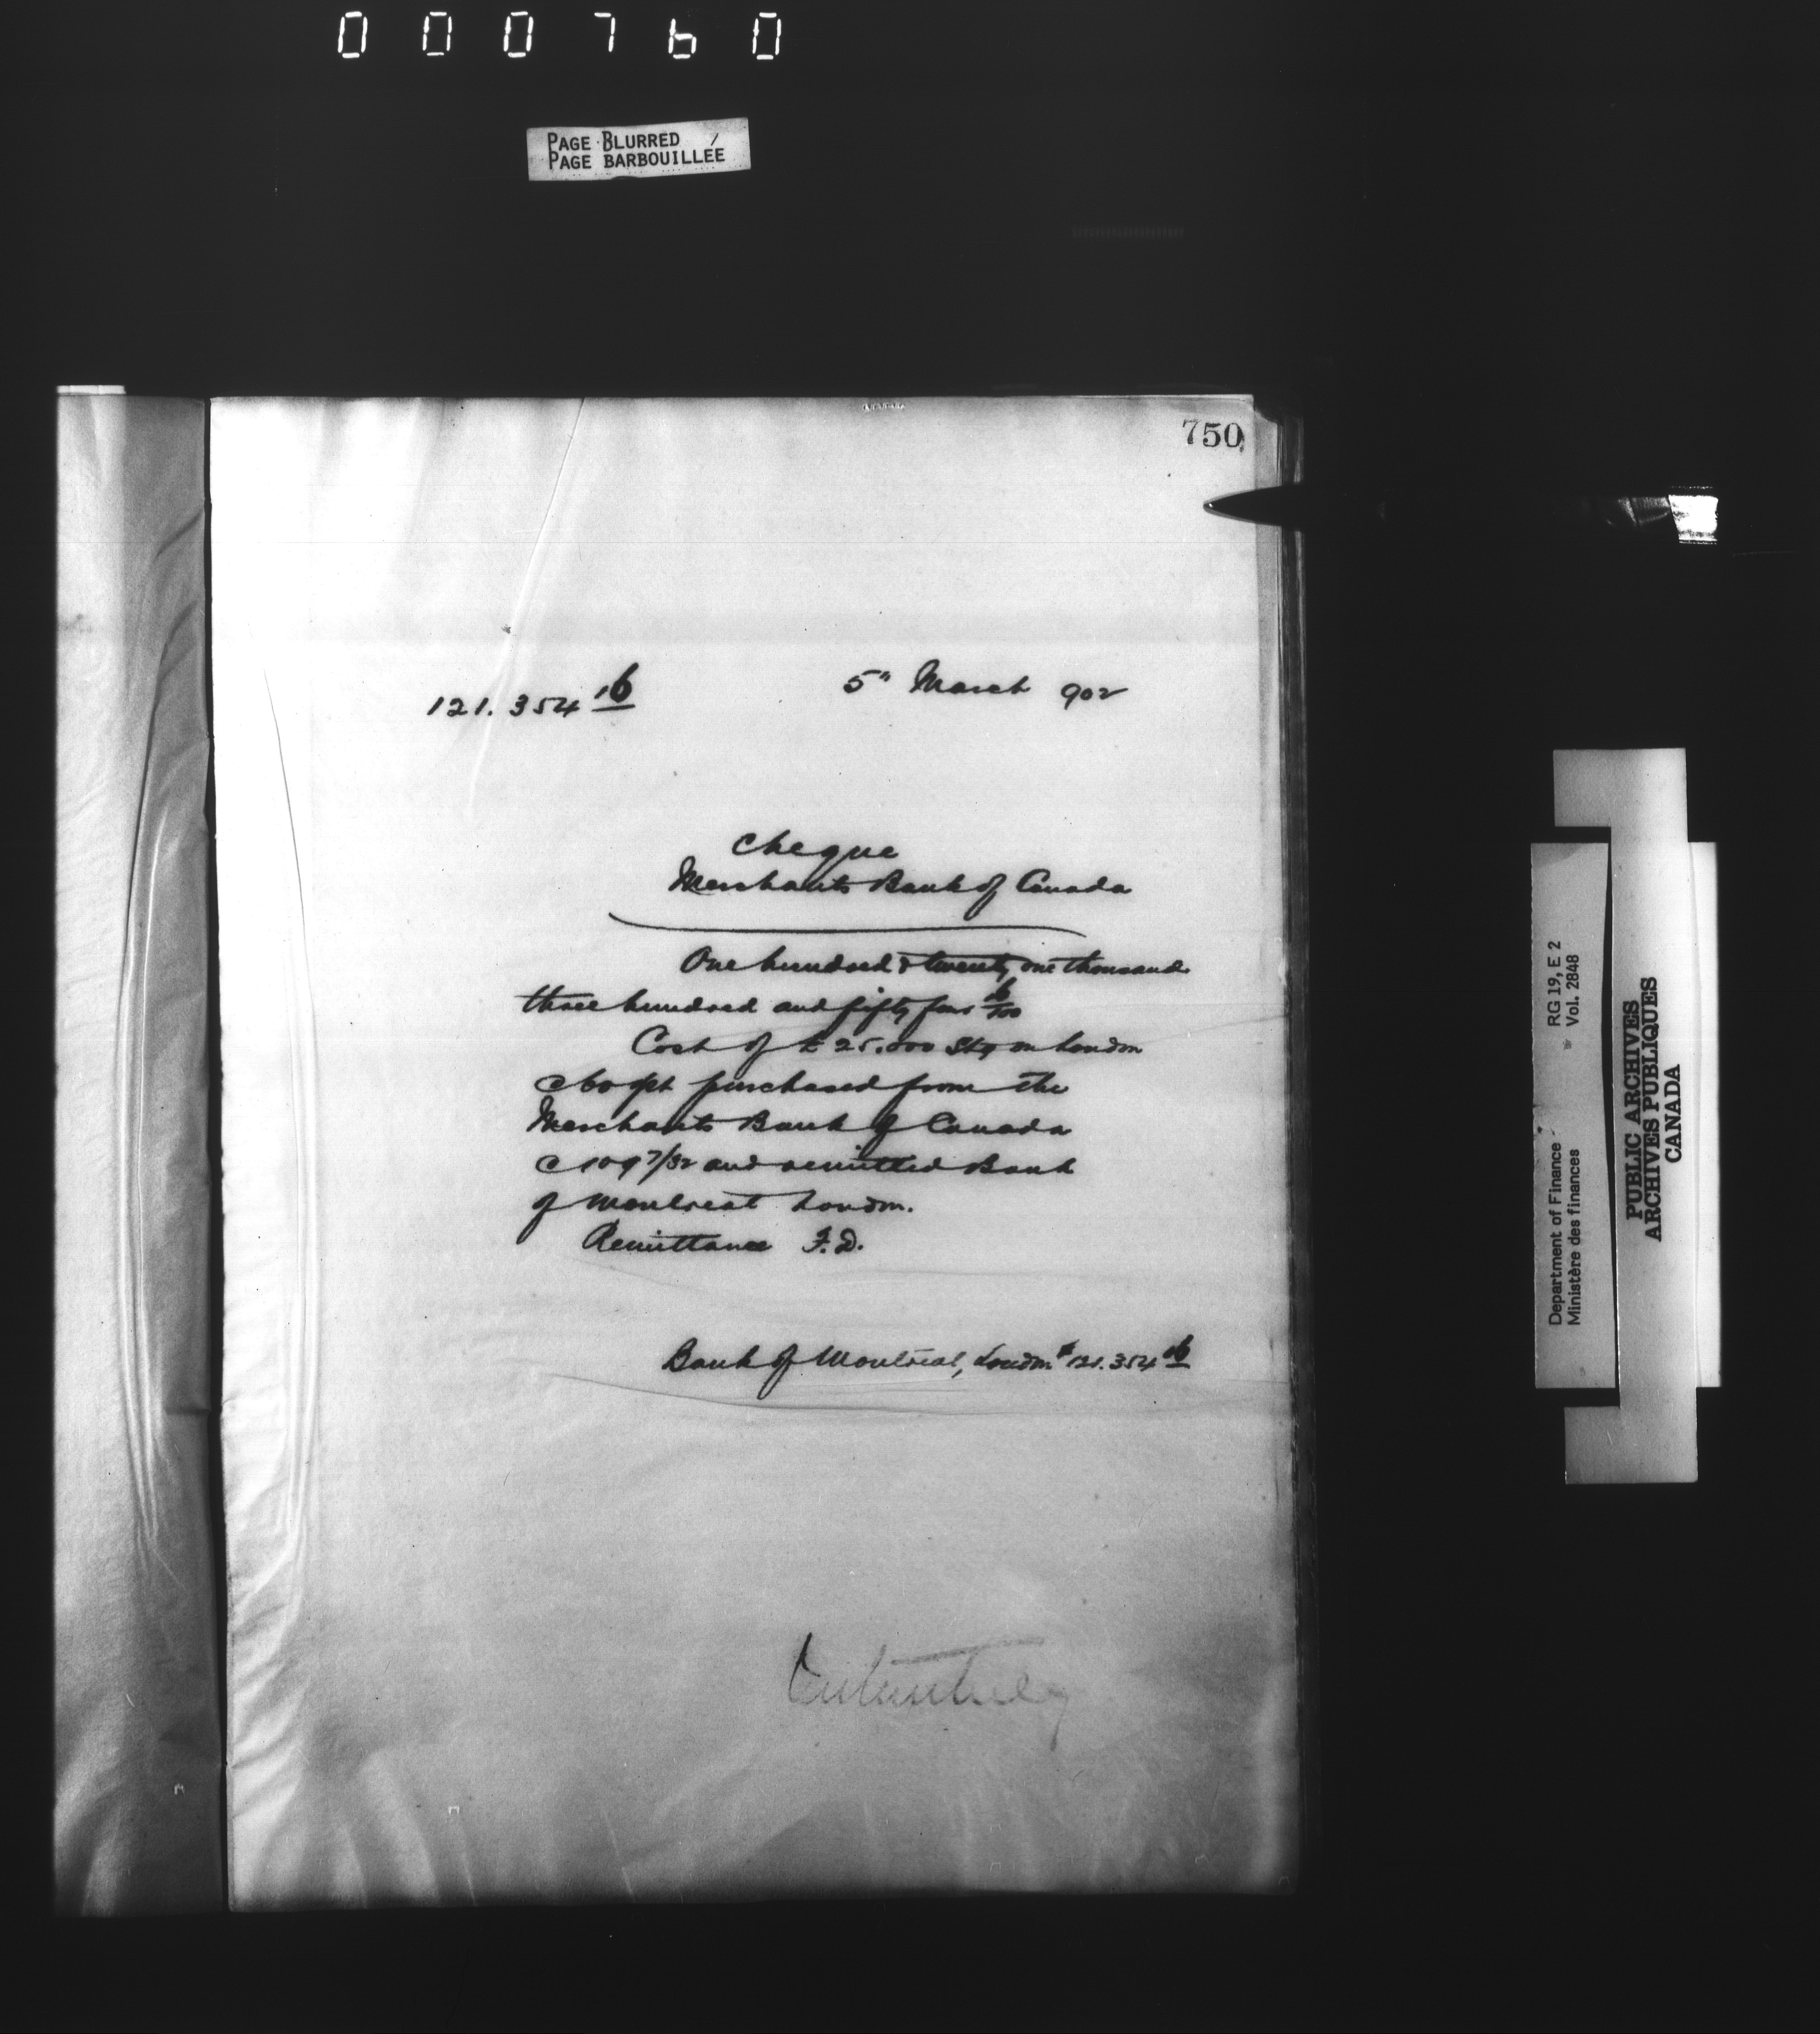 000760
PAGE BLURRED
PAGE BARBOUILLÉE
750
121.354 16
5" March 902
Cheque
Merchants Bank of Canada
One hundred & twenty one thousand
three hundred and fifty four 16/100
Cost of £ 25.000 Stg on London
@ 60 purchased from the
Merchants Bank of Canada
@ 109 7/32 and remitted Bank
of Montreal London.
Remittance F.D.
Bank of Montreal, London $ 121.354 16
Department of Finance RG 19, E 2
Ministère des finances Vol. 2848
PUBLIC ARCHIVES
ARCHIVES PUBLIQUES
CANADA